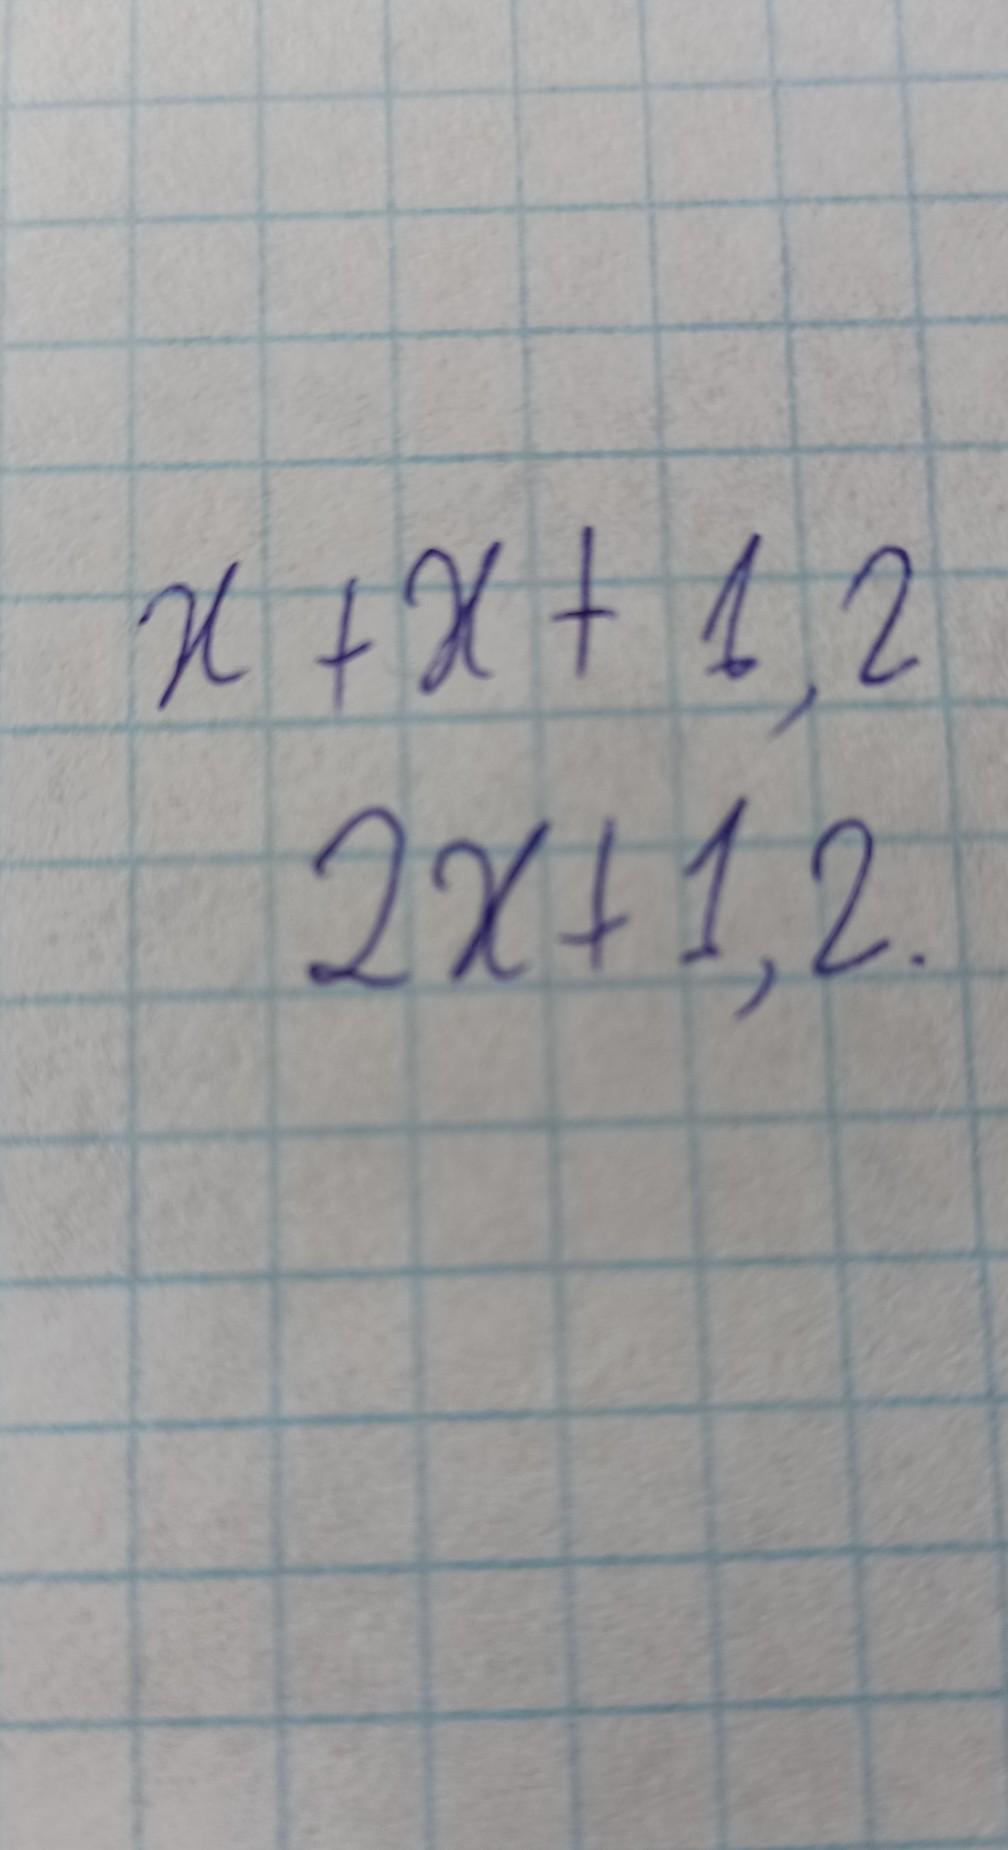 x + x + 1,2
2x + 1,2.